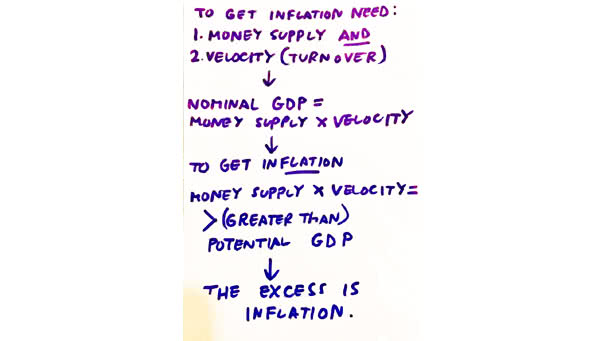 TO GET INFLATION NEED:
1. MONEY SUPPLY AND
2. VELOCITY (TURNOVER)
↓
NOMINAL GDP =
MONEY SUPPLY X VELOCITY
↓
TO GET INFLATION
MONEY SUPPLY X VELOCITY =
> (GREATER THAN)
POTENTIAL GDP
↓
THE EXCESS IS
INFLATION.